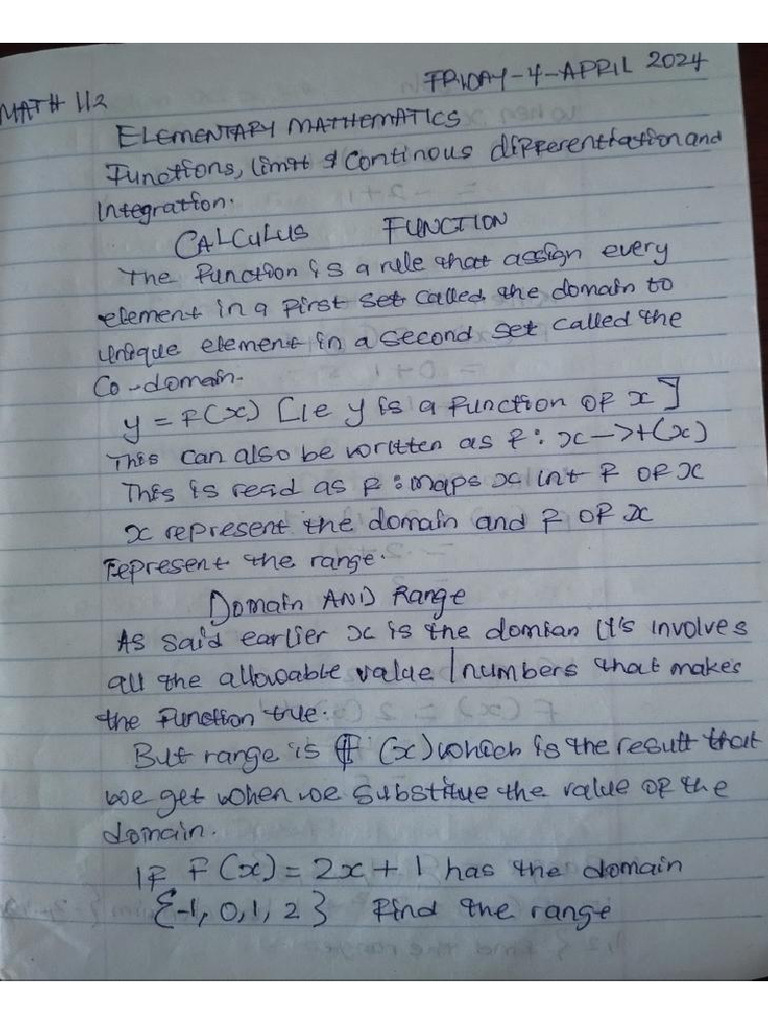 FRIDAY-4-APRIL 2024
MATH 112
ELEMENTARY MATHEMATICS
Functions, limit & Continous differentiation and
Integration.
CALCULUS FUNCTION
The function is a rule that assign every
element in a first set called the domain to
unique element in a second set called the
Co-domain.
y = F(x) [ie y is a function of x]
This can also be written as f: x->f(x)
This is read as f: maps x int f of x
x represent the domain and f of x
represent the range.
Domain AND Range
As said earlier x is the domian it's involves
all the allowable value / numbers that makes
the function true.
But range is f (x) which is the result that
we get when we substitue the value of the
domain.
If F(x) = 2x + 1 has the domain
{-1, 0, 1, 2} Find the range